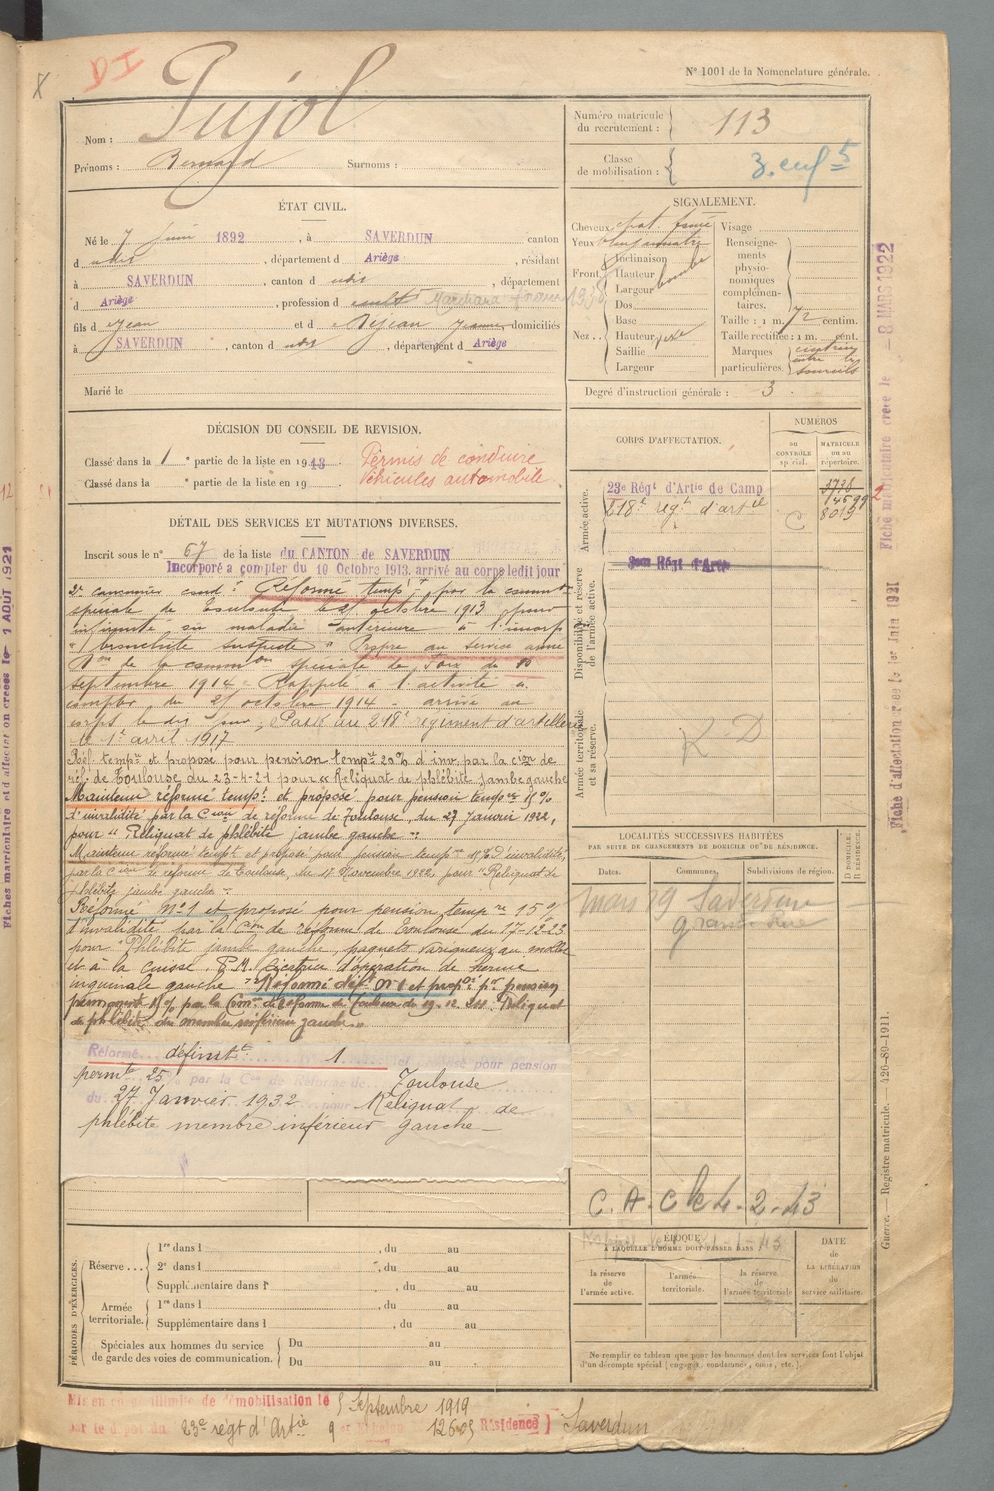 X
DI
N° 1001 de la Nomenclature générale.
Nom : Pujol
Prénoms : Bernard Surnoms :
Numéro matricule du recrutement : 113
Classe de mobilisation : 3. enf 5
ÉTAT CIVIL.
Né le 7 juin 1892, à SAVERDUN canton
d udit, département d Ariège, résidant
à SAVERDUN, canton d udit, département
d Ariège, profession de cult Marchand
fils d e Jean et d e Dejean Jeanne domiciliés
à SAVERDUN, canton d udit, département d Ariège
Marié le
SIGNALEMENT.
Cheveux chat. foncé Visage
Yeux
Renseignements physionomiques complémentaires.
Front Inclinaison
Hauteur
Largeur bombé
Nez.. Dos
Base
Hauteur
Saillie
Largeur
Taille : 1 m. 72 centim.
Taille rectifiée : 1 m. cent.
Marques particulières. cicatrice entre les sourcils
Degré d'instruction générale : 3
DÉCISION DU CONSEIL DE RÉVISION.
Classé dans la 1 e partie de la liste en 1913
Classé dans la e partie de la liste en 19
Permis de conduire
Véhicules automobile
DÉTAIL DES SERVICES ET MUTATIONS DIVERSES.
Inscrit sous le n° 67 de la liste du CANTON de SAVERDUN
Incorporé à compter du 10 Octobre 1913, arrivé au corps ledit jour
2e canonnier cond : Réformé tempt par la common
spéciale de Toulouse le 21 octobre 1913 pour
infirmité ou maladie antérieure à l'incorp
" bronchite suspecte " Propre au service armé
Don de la common spéciale de Foix du 10
septembre 1914 - Rappelé à l'activité à
compter du 21 octobre 1914 - arrivé au
corps le dit jour ; Passé au 218e régiment d'artillerie
le 1er avril 1917
Réf. tempre et proposé pour pension tempre 20% d'inv. par la cion de
réf. de Toulouse du 23-4-21 pour « Reliquat de phlébite jambe gauche
Maintenu réformé tempt et proposé pour pension tempre 15%
d'invalidité par la Cion de réforme de Toulouse, du 27 Janvier 1922,
pour " Reliquat de phlébite jambe gauche "
Maintenu réformé tempt et proposé pour pension tempre 15% d'invalidité,
par la Cion de réforme de Toulouse, du 17 Novembre 1922, pour "Reliquat de
phlébite jambe gauche "
Réformé N° 1 et proposé pour pension tempre 15%
d'invalidité par la Cion de réforme de Toulouse du 17-12-23
pour "Phlébite jambe gauche, paquets variqueux au mollet
et à la cuisse. P.M. Cicatrice d'opération de hernie
inguinale gauche " Réformé déft n° 1 et propé pr pension
permante 15% par la Con de réforme de Toulouse du 19.12. Reliquat
de phlébite du membre inférieur gauche "
Réformé définitt 1 pour pension
permte 25% par la Con de Réforme de Toulouse
du 27 Janvier 1932 pour Reliquat de
phlébite membre inférieur gauche
CORPS D'AFFECTATION.
NUMÉROS
AU CONTRÔLE spécial.
MATRICULE ou au répertoire.
Armée active.
23e Régt d'Artie de Camp
218e régt d'artie
C 8019
Disponibilité et réserve de l'armée active.
Armée territoriale et sa réserve.
R D
LOCALITÉS SUCCESSIVES HABITÉES
PAR SUITE DE CHANGEMENTS DE DOMICILE OU DE RÉSIDENCE.
Dates. Communes. Subdivisions de région.
D DOMICILE. R RÉSIDENCE.
mars 29 Saverdun
grande Rue
C.A.C le 4-2-43
ÉPOQUE
À LAQUELLE L'HOMME DOIT PASSER DANS
la réserve de l'armée active.
l'armée territoriale.
la réserve de l'armée territoriale
DATE DE LA LIBÉRATION du service militaire.
Ne remplir ce tableau que pour les hommes dont les services font l'objet
d'un décompte spécial (engagés, condamnés, omis, etc.).
PÉRIODES D'EXERCICES.
Réserve... 1re dans l , du au
2e dans l , du au
Supplémentaire dans l , du au
Armée territoriale. 1re dans l , du au
Supplémentaire dans l , du au
Spéciales aux hommes du service de garde des voies de communication. Du au
Du au
Mis en congé illimité de démobilisation le 5 Septembre 1919
par le dépôt du 23e régt d'Artie 9 er Echelon 12605 Résidence } Saverdun
Fiche matriculaire créée le - 8 MARS 1922
Fiche d'affectation créée le 1er Juin 1921
Guerre. — Registre matricule. 426-89-1911.
Fiches matriculaire et d'affectation créées le 1 AOUT 1921